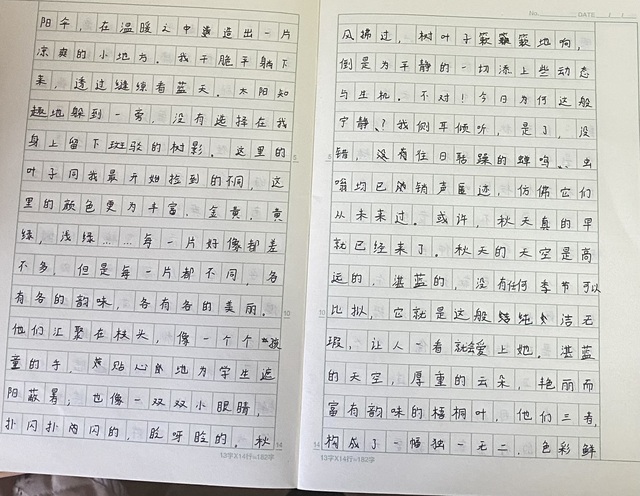 阳伞，在温暖之中造出一片
凉爽的小地方。我干脆平躺下
来，透过缝隙看蓝天。太阳知
趣地躲到一旁，没有选择在我
身上留下斑驳的树影。这里的
叶子同我最开始捡到的不同，这
里的颜色更为丰富。金黄，黄
绿，浅绿……每一片好像都差
不多，但是每一片都不同，各
有各的韵味，各有各的美丽。
他们汇聚在枝头，像一个个孩
童的手，贴心地为学生遮
阳蔽暑；也像一双双小眼睛，
扑闪扑闪的，眨呀眨的，秋
13字X14行=182字
No. DATE / /
风拂过，树叶子簌簌簌地响，
倒是为平静的一切添上些动态
与生机。不对！今日为何这般
宁静？我侧耳倾听，是了，没
错，没有往日聒噪的蝉鸣，虫
嗡均已销声匿迹，仿佛它们
从未来过。或许，秋天真的早
就已经来了。秋天的天空是高
远的，湛蓝的，没有任何季节可以
比拟，它就是这般纯洁无
瑕，让人一看就会爱上她。湛蓝
的天空，厚重的云朵，艳丽而
富有韵味的梧桐叶，他们三者，
构成了一幅独一无二，色彩鲜
13字X14行=182字
5
10
14
5
10
14